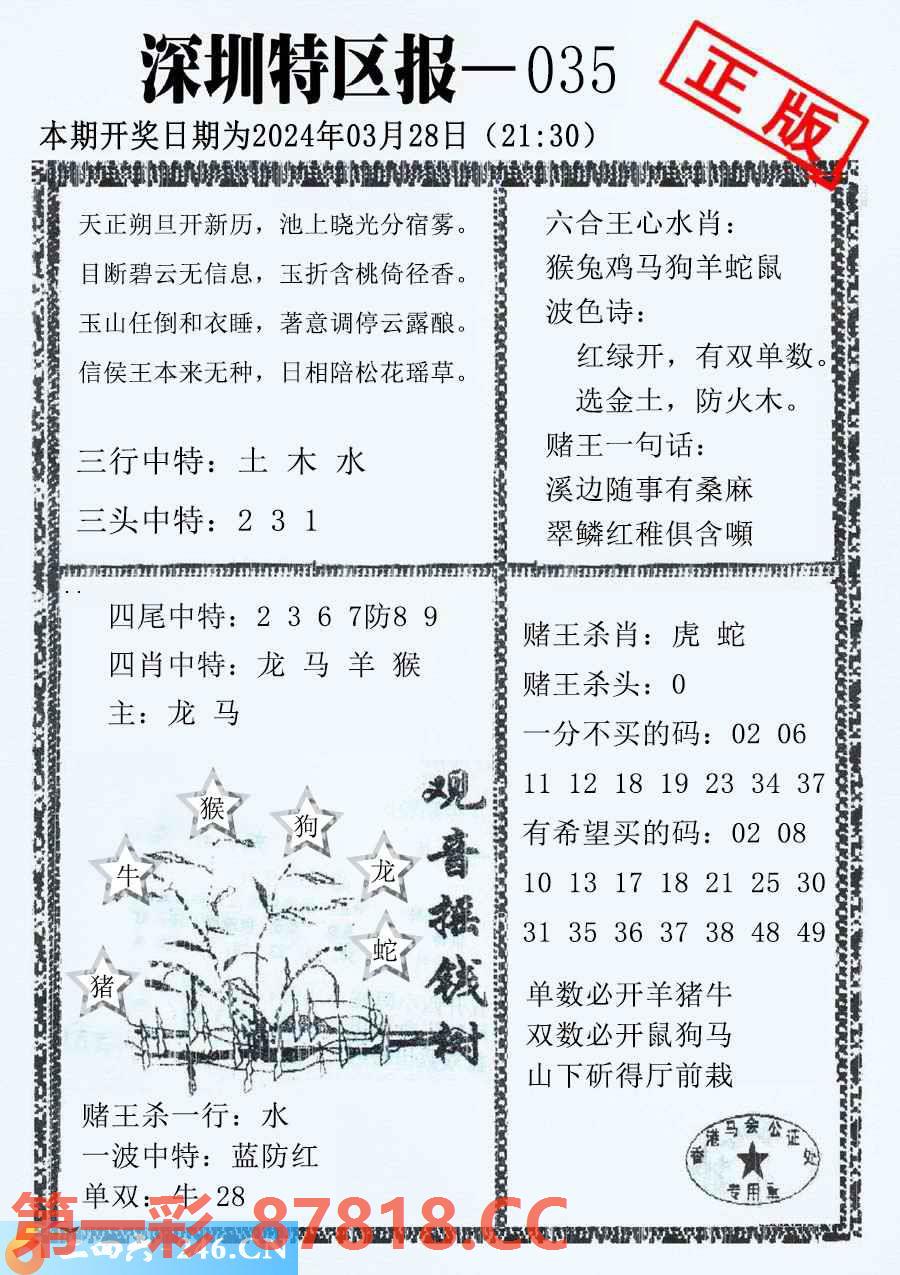 深圳特区报—035
正版
本期开奖日期为2024年03月28日（21:30）
天正朔旦开新历，池上晓光分宿雾。
目断碧云无信息，玉折含桃倚径香。
玉山任倒和衣睡，著意调停云露酿。
信侯王本来无种，日相陪松花瑶草。
三行中特：土 木 水
三头中特：2 3 1
六合王心水肖：
猴兔鸡马狗羊蛇鼠
波色诗：
红绿开，有双单数。
选金土，防火木。
赌王一句话：
溪边随事有桑麻
翠鳞红稚俱含嚬
四尾中特：2 3 6 7防8 9
四肖中特：龙 马 羊 猴
主：龙 马
猴
狗
牛
龙
蛇
猪
观音摇钱树
赌王杀一行：水
一波中特：蓝防红
单双：牛 28
赌王杀肖：虎 蛇
赌王杀头：0
一分不买的码：02 06
11 12 18 19 23 34 37
有希望买的码：02 08
10 13 17 18 21 25 30
31 35 36 37 38 48 49
单数必开羊猪牛
双数必开鼠狗马
山下斫得厅前栽
香港马会公证处
专用章
第一彩 87818.CC
246.CN